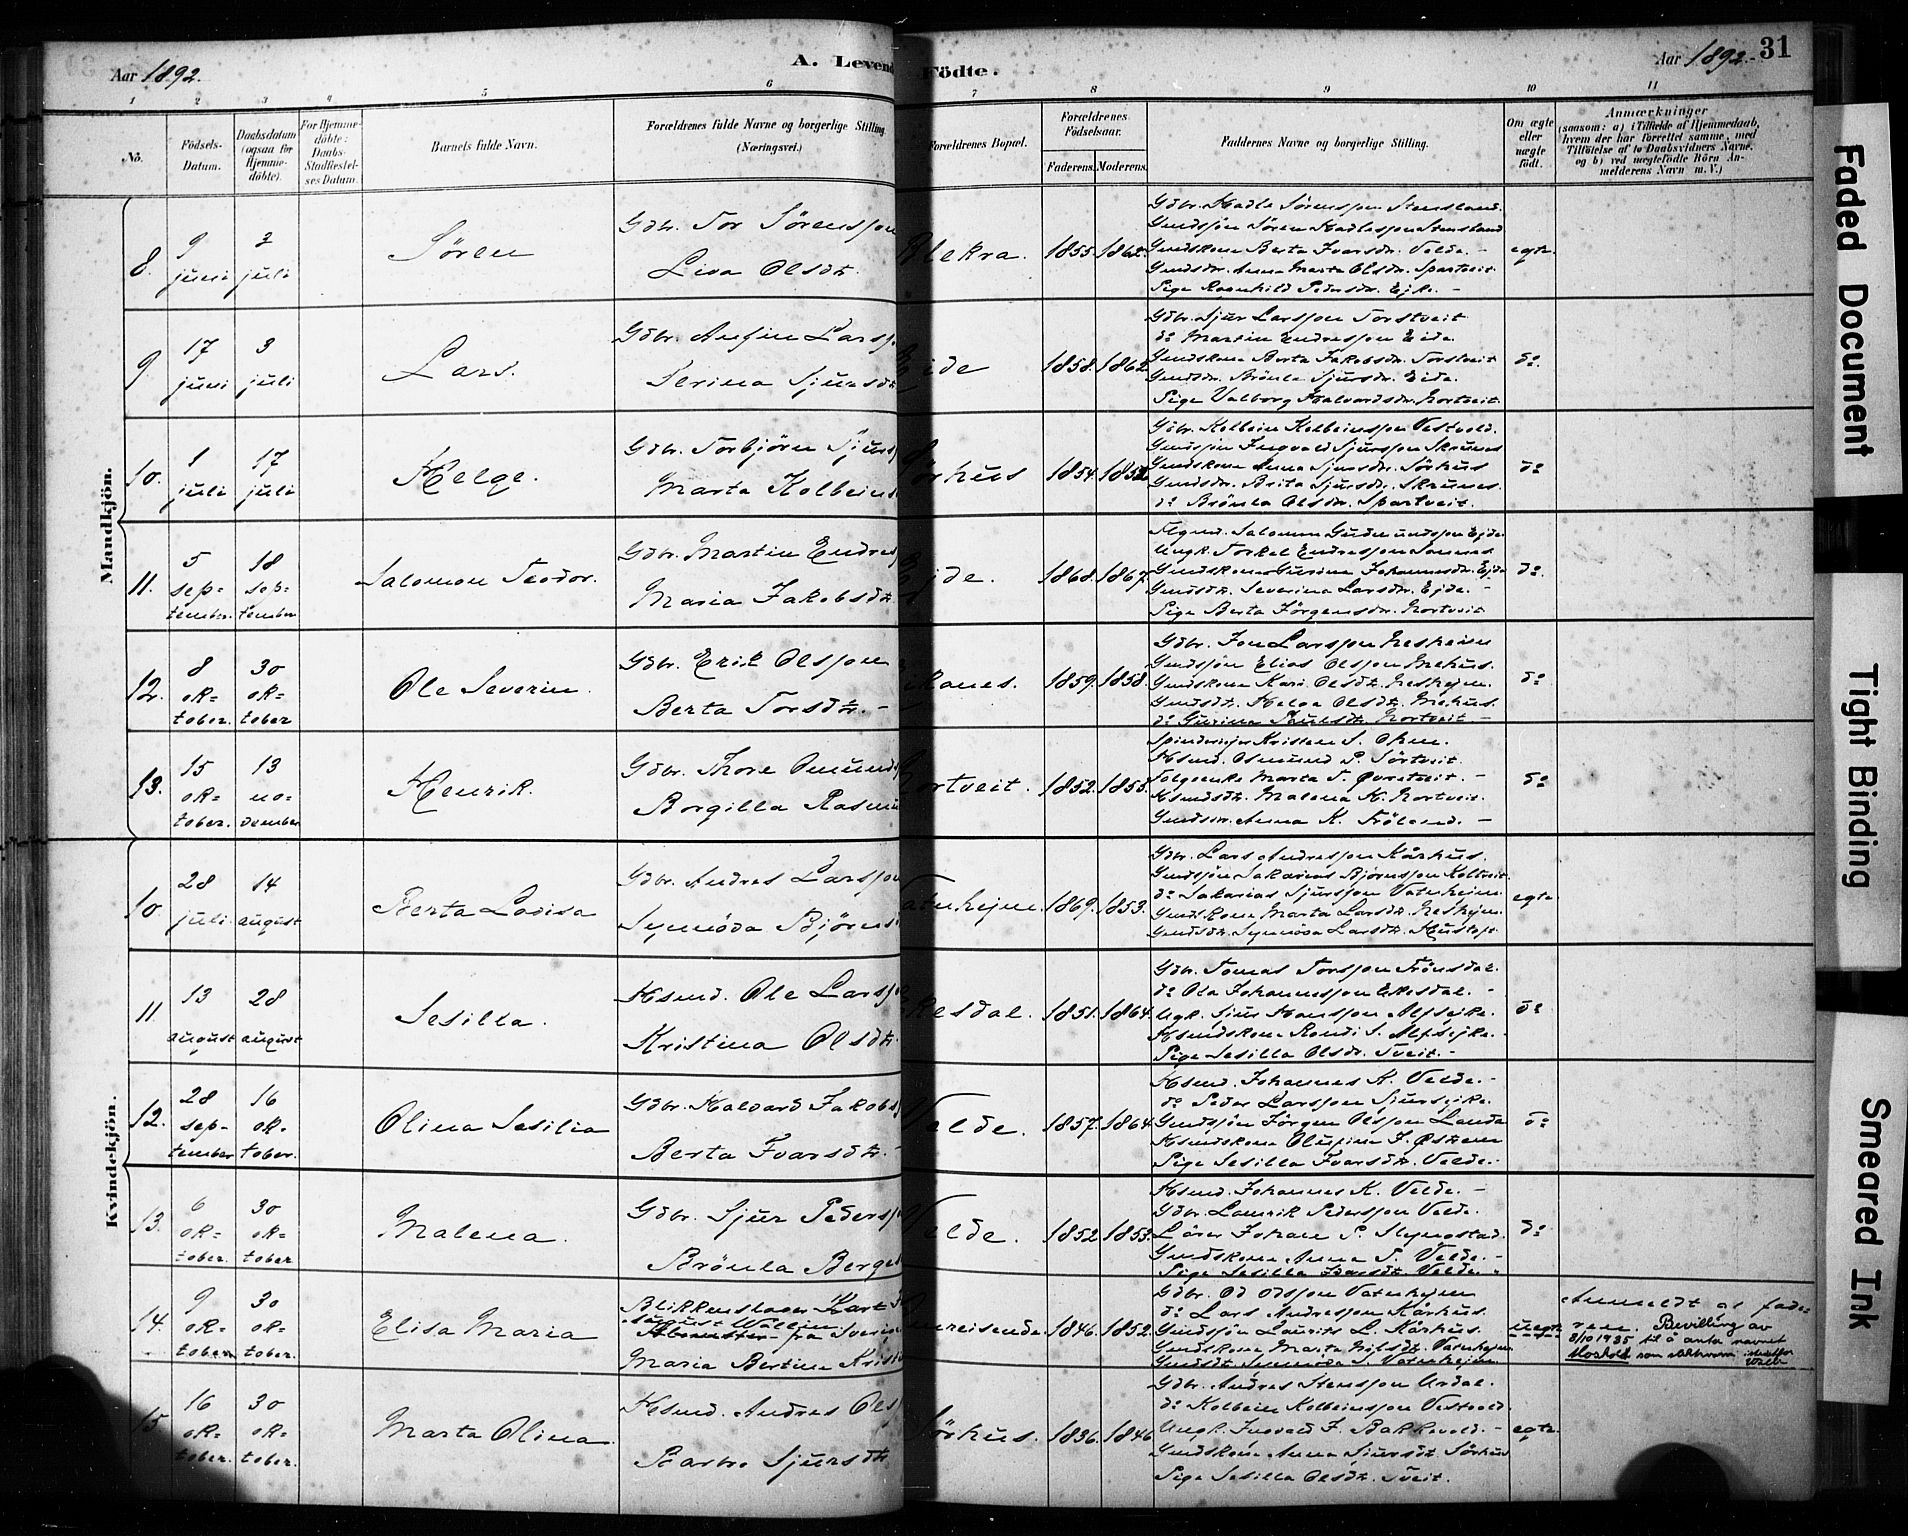 Aar 1892.
A. Levend Födte.
Aar 1892.
31
1 2 3 4 5 6 7 8 9 10 11
No.
Födsels-Datum.
Daabsdatum (ogsaa for Hjemme-döbte).
For Hjemme-döbte: Daabs-Stadfæstel-ses Datum.
Barnets fulde Navn.
Forældrenes fulde Navne og borgerlige Stilling. (Næringsvei.)
Forældrenes Bopæl.
Forældrenes Födselsaar.
Faderens. Moderens.
Faddernes Navne og borgerlige Stilling.
Om ægte eller uægte födt.
Anmærkninger
(saasom: a) i Tilfælde af Hjemmedaab,
hvem der har forrettet samme, med
Tilföielse af to Daabsvidners Navne.
og b) ved uægtefödte Börn An-
melderens Navn m. V.)
Mandkjön.
8. 9 juni 2 juli
Sören
Gdbr. Tor Sörensson
Lisa Olsdt.
1855. 1862.
Gdbr. Hadle Sörensson Stensland.
Gmdsjön Sören Hadlesson Stensland
Gmdskone Berta Ivarsdr. Velde. -
Gmdsdr. Anna Marta Olsdr. Spartveit.
Pige Ragnhild Pedersdr. Ejke. -
egte.
9 17 juni 3 juli
Lars.
Serina Sjursdt
Ejde
1858. 1862
Gdbr. Sjur Larsson Torstveit
do Martin Endresson Ejde.
Gmdskone Berta Jakobsdr. Torstveit
Gmdsdr. Brönla Sjursdr. Ejde.
Pige Valborg Halvardsdr. Nortveit.
do.
10. 1 juli 17 juli
Helge.
Gdbr. Torbjörn Sjurs
Marta Kolbeins
Sörhus
1854. 1852
Gdbr. Kolbein Kolbeinsson Vestvold.
Gmdsjön Ingvald Sjursson Skrunes
Gmdskone Anna Sjursdr. Sörhus
Gmdsdr. Brita Sjursdr. Skrunes.
do Brönla Olsdr. Spartveit.
do
11. 5 sep-tember. 18 sep-tember
Salomon Teodor.
Gdbr. Martin Endres
Maria Jakobsdt
Ejde.
1868. 1867.
Salomon Gudmundsson Ejde
Ungk. Torkel Endresson Sannes
Gmdskone Gurina Johannesdr. Ejde
Gmdsdt. Severina Larsdr. Ejde. -
Pige Berta Jörgensdr. Nortveit
do.
12. 8 ok-tober. 30 ok-tober
Ole Severin.
Gdbr. Erik Olsson
Berta Torsdt. -
1859. 1858.
Gdbr. Jon Larsson Nesheim
Gmdsjön Elias Olsson Mehus.
Gmdskone Kari Olsdt. Neshejm.
Gmdsdt. Helga Olsdt. Mehus.
do Gurina Paulsdt. Nortveit. -
do
13. 15 ok-tober. 13 no-vember
Henrik.
Gdbr. Thore Omunds
Borgilla Rasmu
Nortveit.
1852. 1855.
Kristen S. Ohm.
Hsmd. Osmund P. Sörtveit.
Marta T. Øvretveit. -
Hsmdsdt. Malena K. Nortveit.
Gmdsdr. Anna K. Fröland. -
do
Kvindekjön.
10. 28 juli. 14 august
Berta Lovisa
Gdbr. Andres Larsson
Synnöva Björns
Vatnhejm.
1869. 1853.
Gdbr. Lars Andresson Kårhus.
Gmdsjön Sakarias Björnsson
do Sakarias Sjursson Vatnhejm.
Gmdskone Marta Larsdt. Neshejm.
Gmdsdt. Synnöva Larsdt.
egte
11. 13 august 28 august
Sesilla.
Hsmd. Ole Larss
Kristina Olsdt.
1851. 1864.
Gdbr. Tomas Torsson
do Ola Johannesson Ekesdal. -
Ugk. Sjur Hansson Alfsejke.
Hsmdskone Randi S. Alfsejke. -
Pige Sesilla Olsdr. Tveit. -
do
12. 28 sep-tember 16 ok-tober.
Olina Sesilia
Gdbr. Halvard Jakobs
Berta Ivarsdt. -
Velde.
1857. 1864
Hsmd. Johannes K. Velde. -
do Peder Larsson
Gmdsjön Jörgen Olsson Landa
Hsmdskone Olufine J. Østhem
Pige Sesilla Ivarsdt. Velde. -
do
13. 6 ok-tober. 30 ok-tober
Malena.
Gdbr. Sjur Peders
Brönla Berge
Velde.
1852 1853.
Hsmd. Johannes K. Velde. -
Gdbr. Laurik Pedersson Velde.
Lærer Johan P. Slyngstad.
Gmdskone Anna P. Velde. -
Pige Sesilla Ivarsdt. Velde. -
do
14. 9 ok-tober. 30 ok-tober.
Elisa Maria
Blikkenslager Karl
August Wallin
fra Sverige
Maria Bertine Kristi
Omreisende.
1846. 1852.
Gdbr. Od Odsson Vatnhejm
do Lars Andresson Kårhus.
Gmdsjön Laurits L. Kårhus.
Gmdskone Marta Nilsdt. Vatnhejm.
Gmdsdt. Synnöva S. Vatnhejm.
uegte
Anmeldt af fade-
ren. Bevilling av
8/10 1935 til å anta navnet
som slektsnavn istedetfor
15 16 ok-tober. 30 ok-tober.
Marta Olina.
Hsmd. Andres Ols
Barbro Sjursdt.
Sörhus.
1836. 1846
Gdbr. Andres Stensson Årdal.
do Kolbein Kolbeinsson Vestvold.
Ungk. Ingvald J. Bakkevold. -
Gmdskone Anna Sjursdt. Sörhus
Pige Sesilla Olsdt. Tveit.
egte.
Faded Document
Tight Binding
Smeared Ink